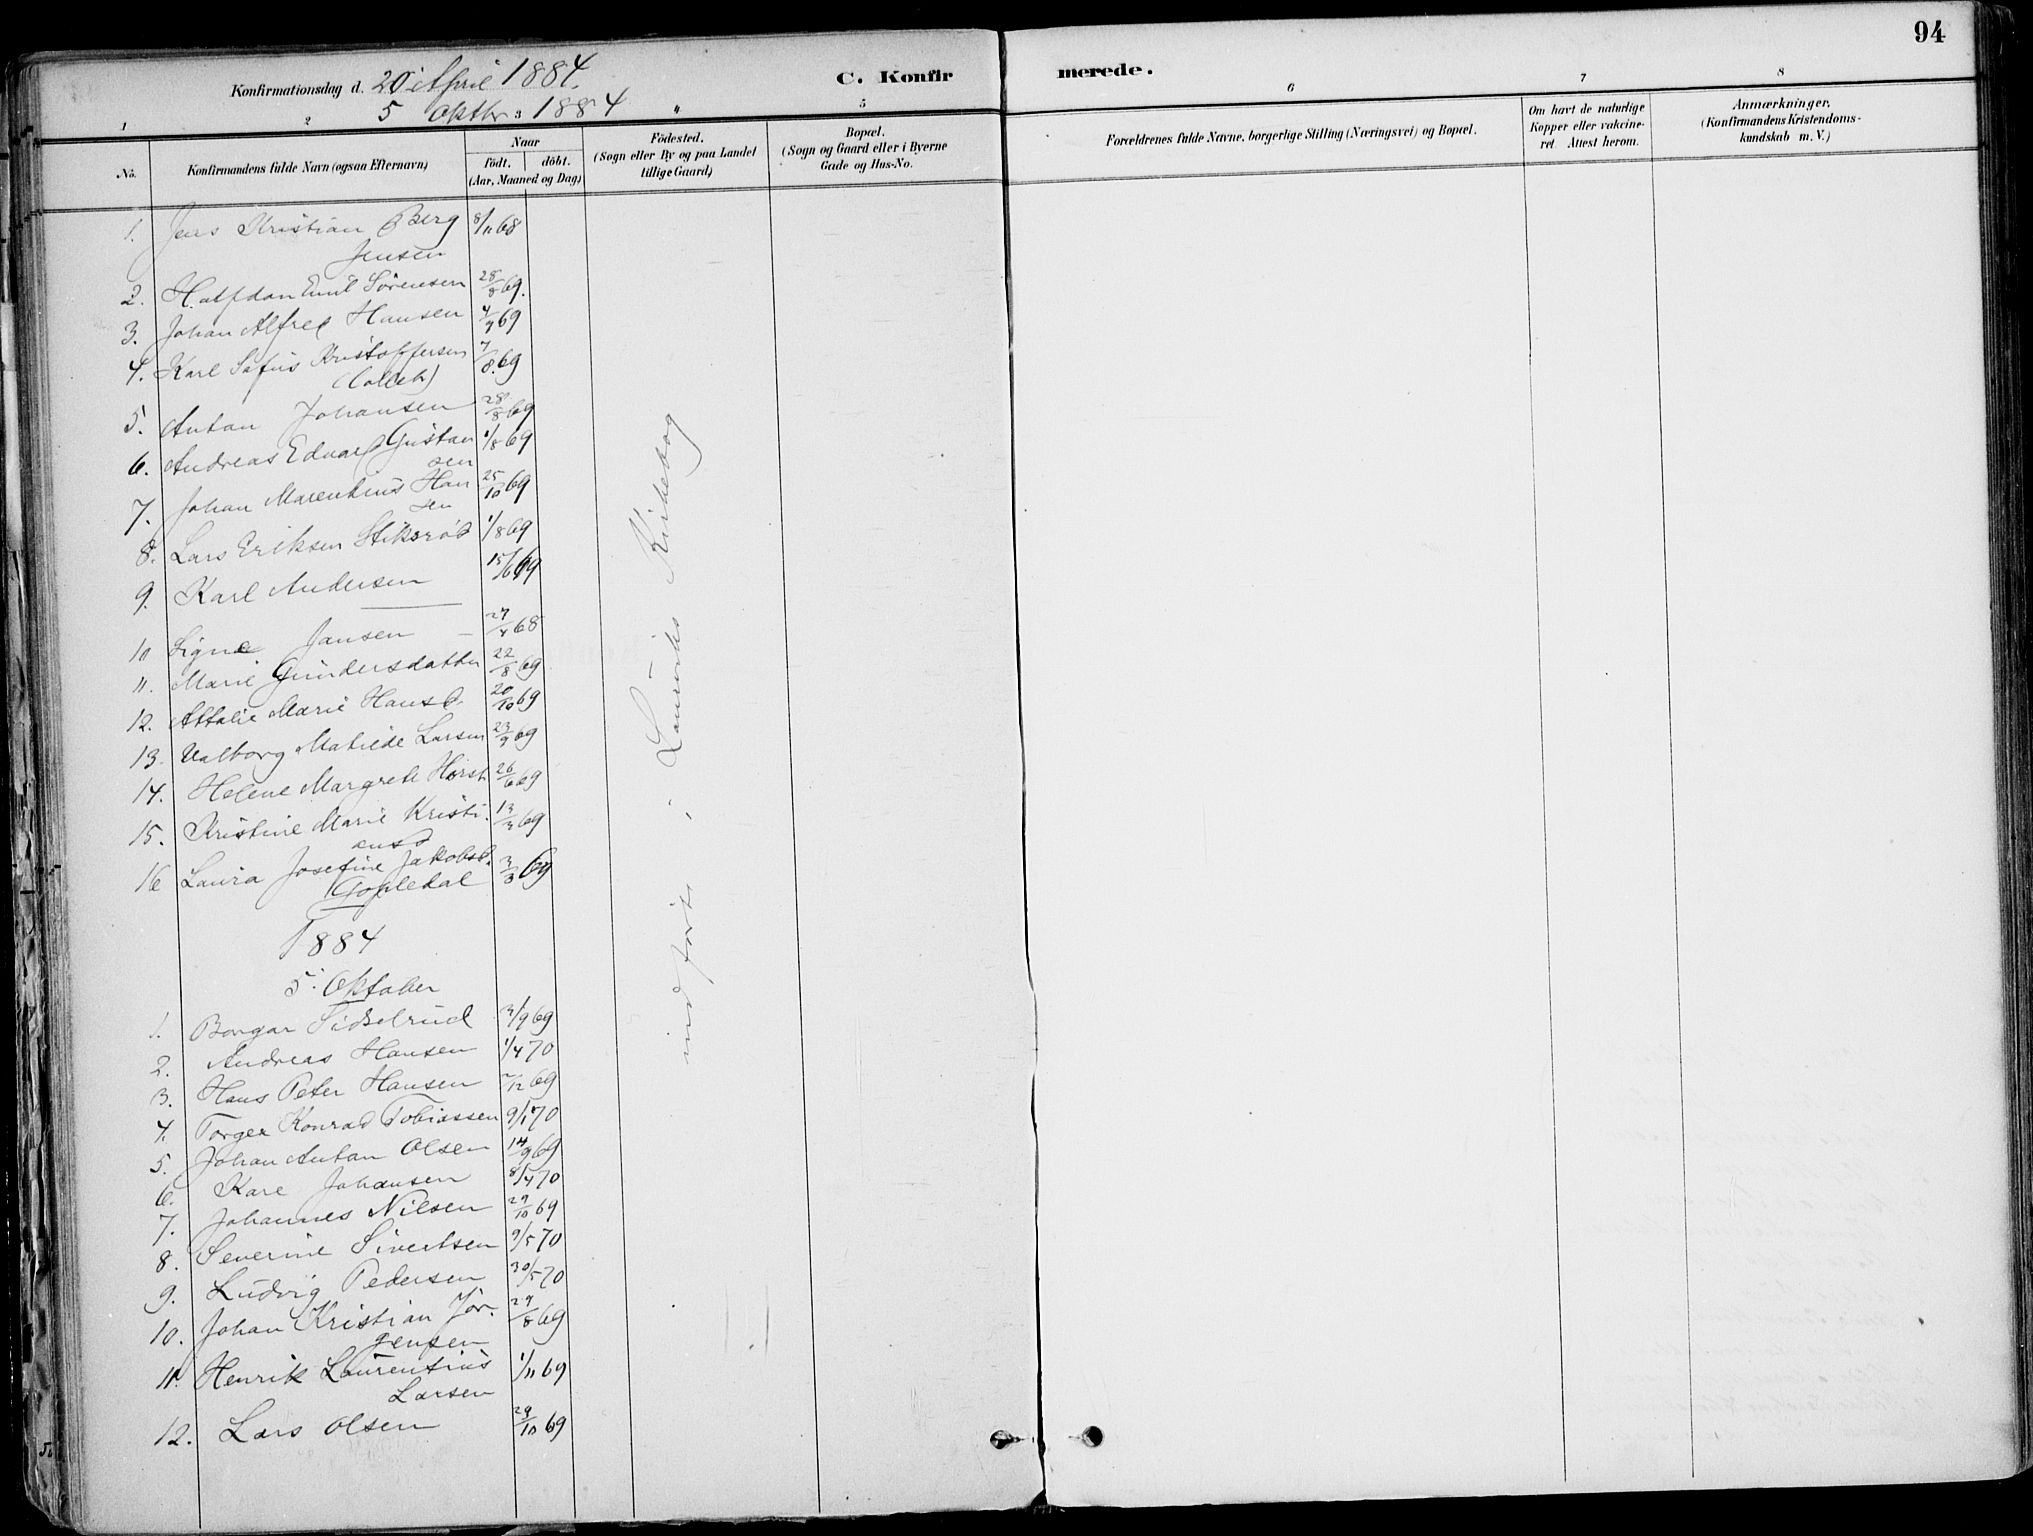 94
Konfirmationsdag d. 20 April 1884.
5 Oktbr 1884
C. Konfir merede.
1 2 3 4 5 6 7 8
No.
Konfirmandens fulde Navn (ogsaa Efternavn)
Naar
födt. döbt.
(Aar, Maaned og Dag)
Födested.
(Sogn eller By og paa Landet
tillige Gaard)
Bopæl.
(Sogn og Gaard eller i Byerne
Gade og Hus-No.
Forældrenes fulde Navne, borgerlige Stilling (Næringsvei) og Bopæl.
Om havt de naturlige
Kopper eller vakcine-
ret. Attest herom.
Anmærkninger.
(Konfirmandens Kristendoms-
kundskab m. V.)
1. Jens Kristian Berg 8/11 68
Jensen
2. Halfdan Emil Sörensen 28/8 69.
3. Johan Alfred Hansen 4/9 69
4. Karl Sofus Kristoffersen 7/8 69
5. Anton Johansen 28/8 69
6. Andreas Edvard Gustav 1/8 69
sen
7. Johan Marentius Han 25/10 69
sen
8. Lars Eriksen Stiksröd 1/8 69
9. Karl Andersen 15/6 69
10 Signe Jansen 27/4 68
11. Marie Gundersdatter 22/8 69
12. Attalie Marie Hansd. 20/10 69
13. Valborg Matilde Larsen 23/9 69
14. Helene Margrete Horst 26/6 69
15. Kristine Marie Kristi. 13/3 69
ansd
16 Laura Josefine Jakobsd. 3/3 69
Gopledal
1884
5. Oktober
1. Borgar Sidselrud 3/9 69
2. Andreas Hansen 1/4 70
3. Hans Peter Hansen 2/12 69
4. Torger Konrad Tobiassen 9/1 70
5. Johan Anton Olsen 14/9 69
6. Karl Johansen 8/4 70
7. Johannes Nilsen 29/10 69
8. Severine Sivertsen 9/5 70
9. Ludvig Pedersen 30/5 70
10. Johan Kristian Jör. 29/8 69
gensen
11. Henrik Laurentius 1/11 69
Larsen
12. Lars Olsen 29/10 69
indfört i Laurviks Kirkebog